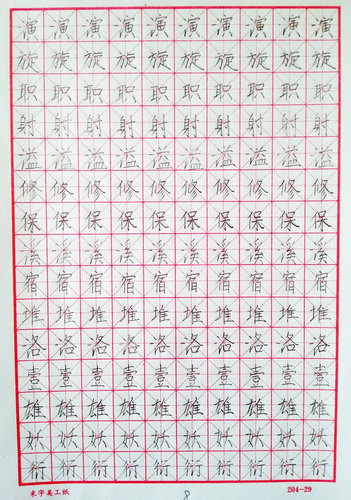 演演演演演演演演演演
旋旋旋旋旋旋旋旋旋旋
职职职职职职职职职职
射射射射射射射射射射
溢溢溢溢溢溢溢溢溢溢
修修修修修修修修修修
保保保保保保保保保保
溪溪溪溪溪溪溪溪溪溪
宿宿宿宿宿宿宿宿宿宿
堆堆堆堆堆堆堆堆堆堆
洛洛洛洛洛洛洛洛洛洛
壹壹壹壹壹壹壹壹壹壹
雄雄雄雄雄雄雄雄雄雄
妖妖妖妖妖妖妖妖妖妖
衍衍衍衍衍衍衍衍衍衍
米字美工纸 8 204-29